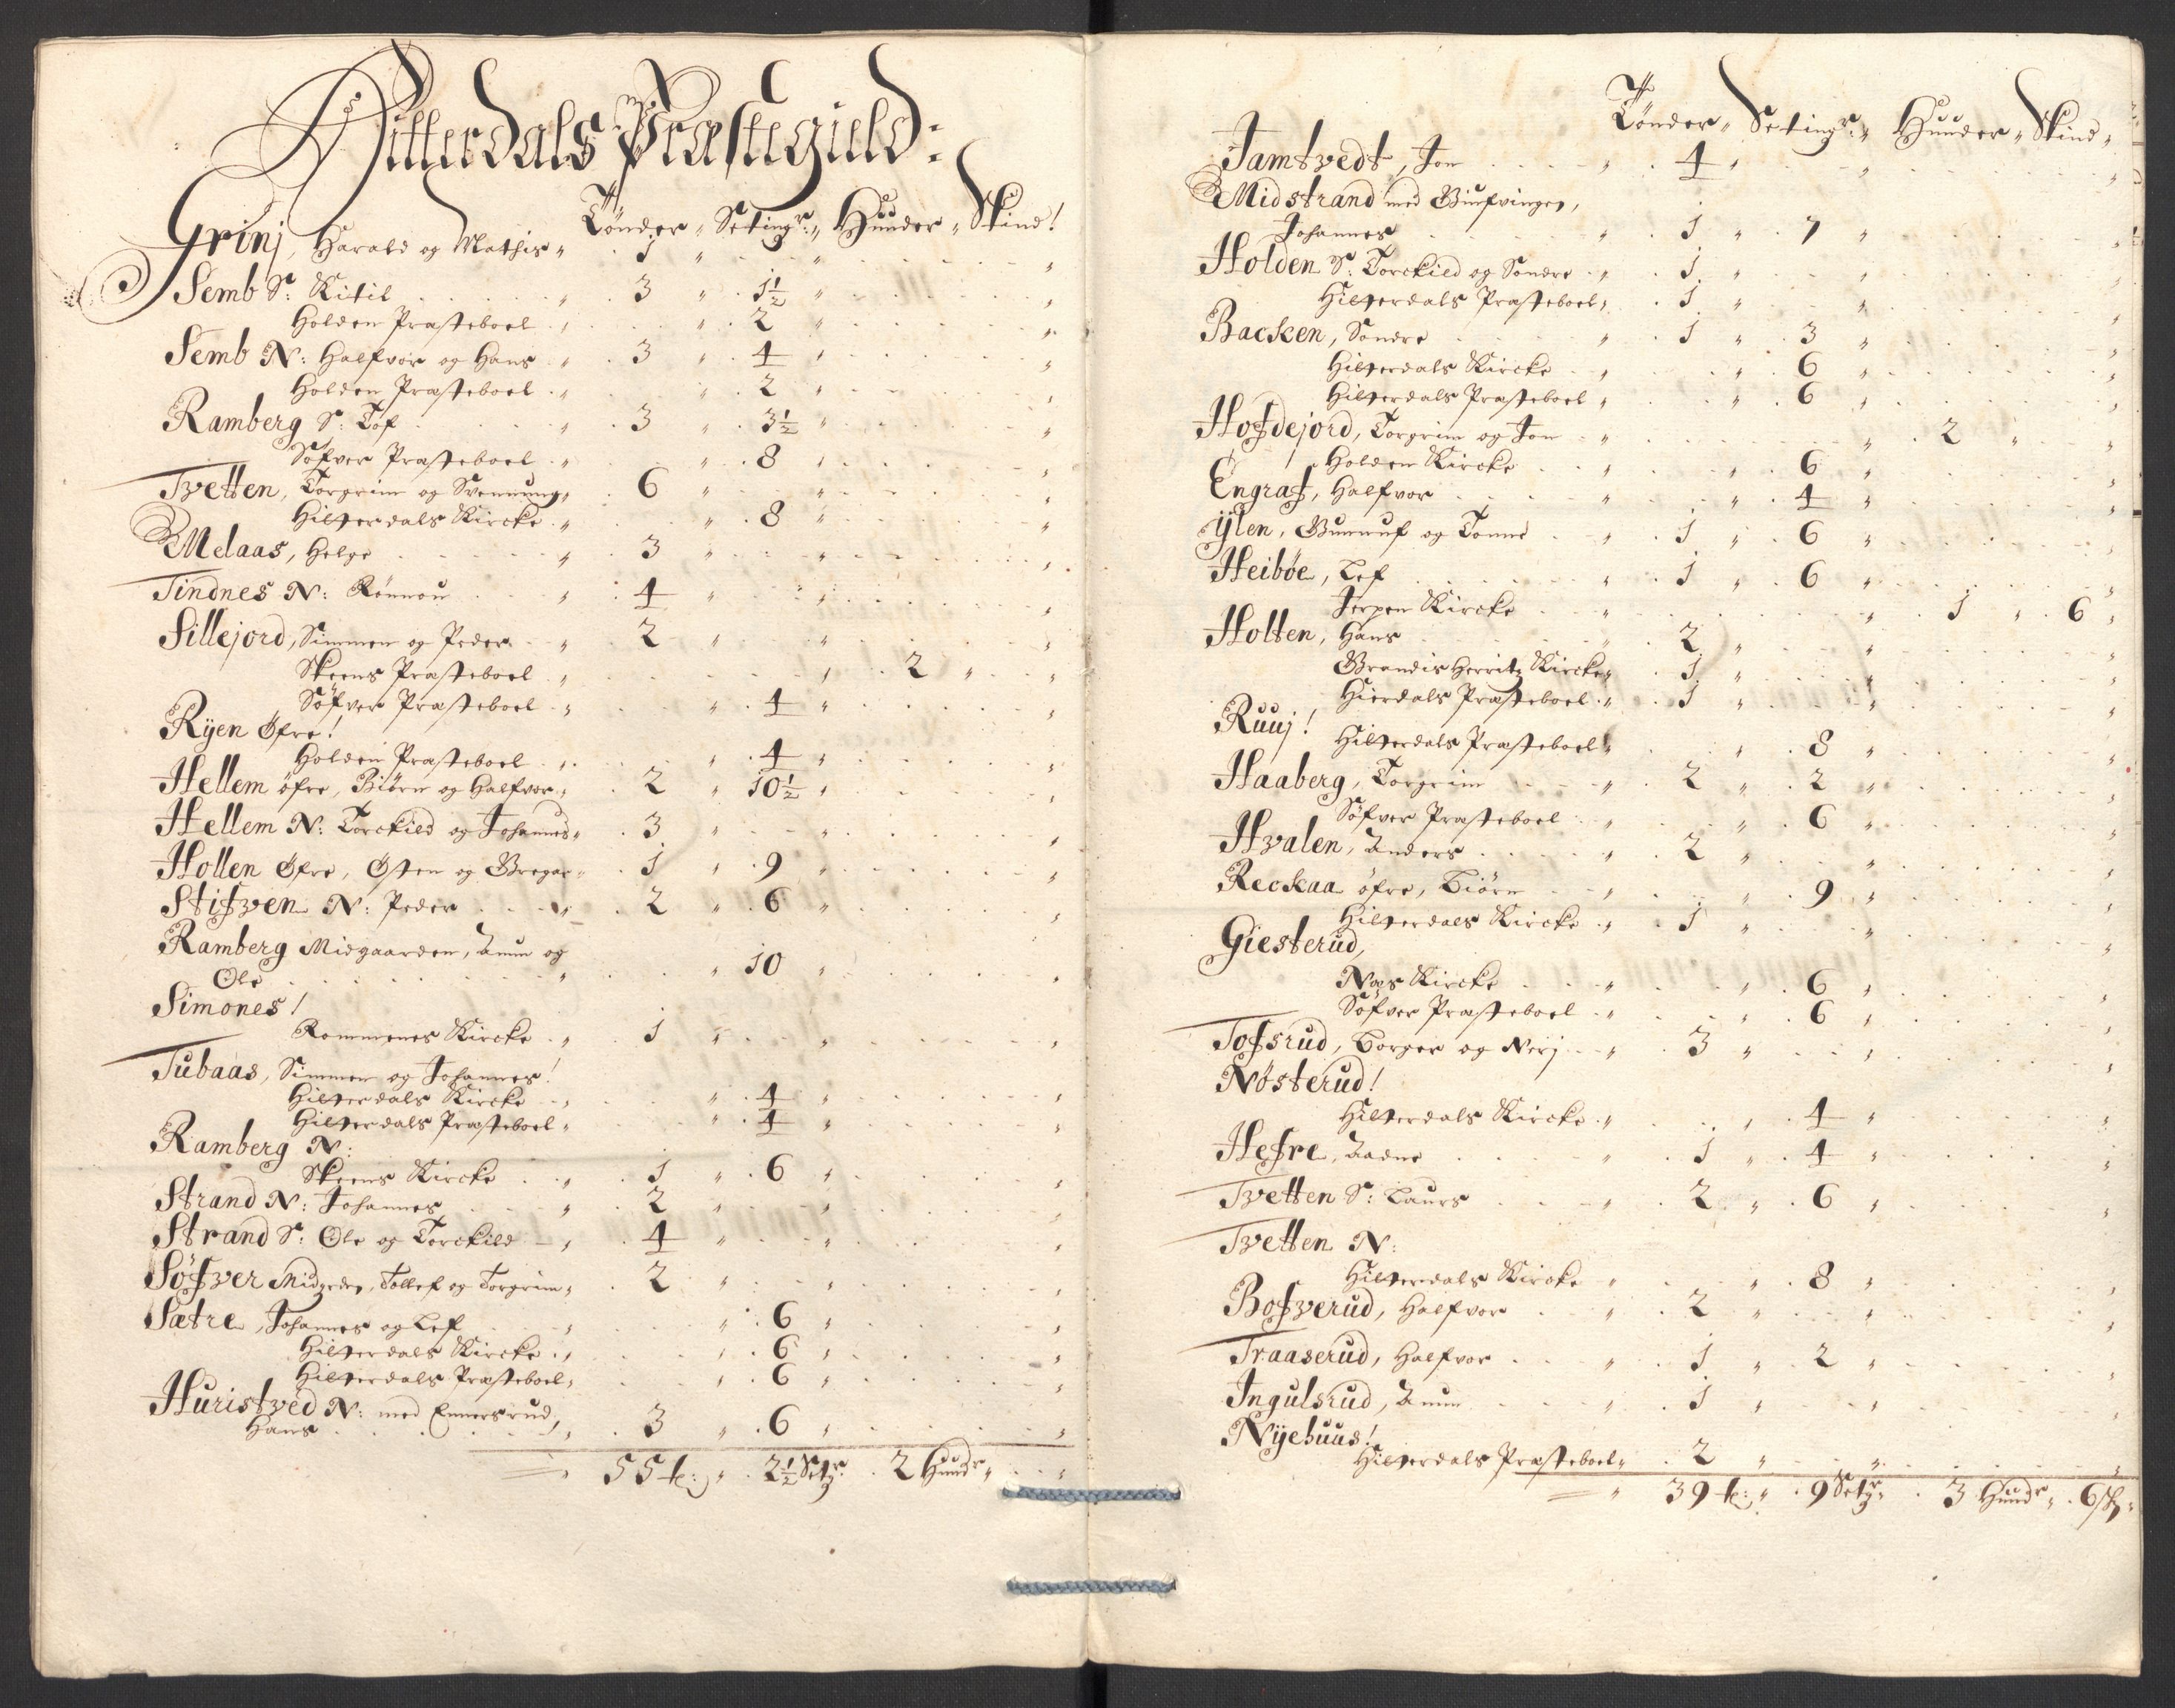 Hitterdals Præstegield:
Tønder „ Setingr: „ Huuder „ Skind!
Grinj, Harald og Mathis „ 1 „
Semb S: Kitil „ 3 „ 1½ „
Holden Præsteboel „ 2 „
Semb N: Halfvor og Hans „ 3 „ 4 „
Holden Præsteboel „ 2 „
Ramberg S: Tof „ 3 „ 3½ „
Søfver Præsteboel „ 8 „
Tvetten, Torgrim og Svennung „ 6 „
Hitterdals Kircke „ 8 „
Melaas, Helge „ 3 „
Tindnes N: Rønnou „ 4 „
Sillejord, Simmen og Peder „ 2 „
Skeens Præsteboel „ 2 „
Søfver Præsteboel „ 4 „
Rÿen Øfre!
Holden Præsteboel „ 4 „
Hellem øfre, Biørn og Halfvor „ 2 „ 10½ „
Hellem N: Torckild og Johannes „ 3 „
Hollen Øfre, Østen og Gregar „ 1 „ 9 „
Stifven N: Peder „ 2 „ 6 „
Ramberg Midgaarden, Anun og
Ole „ 10 „
Simones!
Rommenes Kircke „ 1 „
Tubaas, Simmen og Johannes!
Hitterdals Kircke „ 4 „
Hitterdals Præsteboel „ 4 „
Ramberg N:
Skeens Kircke „ 1 „ 6 „
Strand N: Johannes „ 2 „
Strand S: Ole og Torckild „ 4 „
Søfver Midgrden, Tollef og Torgrim „ 2 „
Sætre, Johannes og Lef „ 6 „
Hitterdals Kircke „ 6 „
Hitterdals Præsteboel „ 6 „
Huristved N: med Ennersrud,
Hans „ 3 „ 6 „
55 t: „ 2½ Setgr „ 2 Hundr „
Tønder „ Setingr: „ Huuder „ Skind „
Jamtvedt, Jon „ 4 „
Midstrand med
Johannes „ 1 „ 7 „
Holden S: Torckild og Søndre „ 1 „
Hitterdals Præsteboel „ 1 „
Backen, Søndre „ 1 „ 3 „
Hitterdals Kircke „ 6 „
Hitterdals Præsteboel „ 6 „
Hofdejord, Torgrim og Jon „ 2 „
Holden Kircke „ 6 „
Engraf, Halfvor „ 4 „
Ÿlen, Gunnuf og Tonne „ 1 „ 6 „
Heibøe, Lef „ 1 „ 6 „
Jerpen Kircke „ 1 „ 6 „
Holten, Hans „ 2 „
Brandis Herritz Kircke „ 1 „
Hierdals Præsteboel „ 1 „
Ruuj!
Hitterdals Præsteboel „ 8 „
Haaberg, Torgrim „ 2 „ 2 „
Søfver Præsteboel „ 6 „
Hvalen, Anders „ 2 „
Reckaa øfre, Biørn „ 9 „
Hitterdals Kircke „ 1 „
Giesterud,
Næs Kircke „ 6 „
Søfver Præsteboel „ 6 „
Tofsrud, Borger og Nerj „ 3 „
Nøsterud!
Hitterdals Kircke „ 4 „
Hefre, Aadne „ 1 „ 4 „
Tvetten S: Laurs „ 2 „ 6 „
Tvetten N:
Hitterdals Kircke „ 8 „
Bofverud, Halfvor „ 2 „
Traaserud, Halfvor „ 1 „ 2 „
Ingulsrud, Anun „ 1 „
Nÿehuus!
Hitterdals Præsteboel „ 2 „
39 t: „ 9 Setgr „ 3 Hundr „ 6 sk „